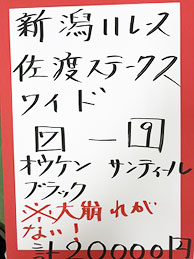 新潟11レース
佐渡ステークス
ワイド
7 － 9
オウケン サンティール
ブラック
※大崩れが
ない!
計20000円